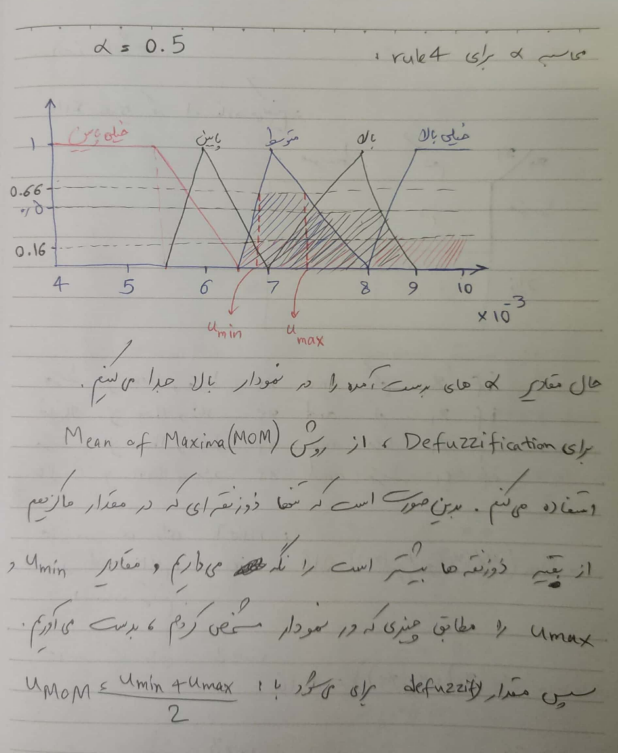 محاسبه α برای rule4 :
α = 0.5
خیلی پایین پایین متوسط بالا خیلی بالا
1
0.66
0.5
0.16
4 5 6 7 8 9 10
×10⁻³
umin umax
حال مقادیر α های بدست آمده را در نمودار بالا جدا می‌کنیم.
برای Defuzzification ، از روش Mean of Maxima(MOM)
استفاده می‌کنم. بدین صورت است که تنها ذوزنقه‌ای که در مقدار ماکزیمم
از بقیه ذوزنقه ها بیشتر است را نگه می‌داریم و مقادیر umin و
umax را مطابق چیزی که در نمودار مشخص کردم ، بدست می‌آوریم.
سپس مقدار defuzzify برای می‌شود با :
uMOM = umin + umax / 2